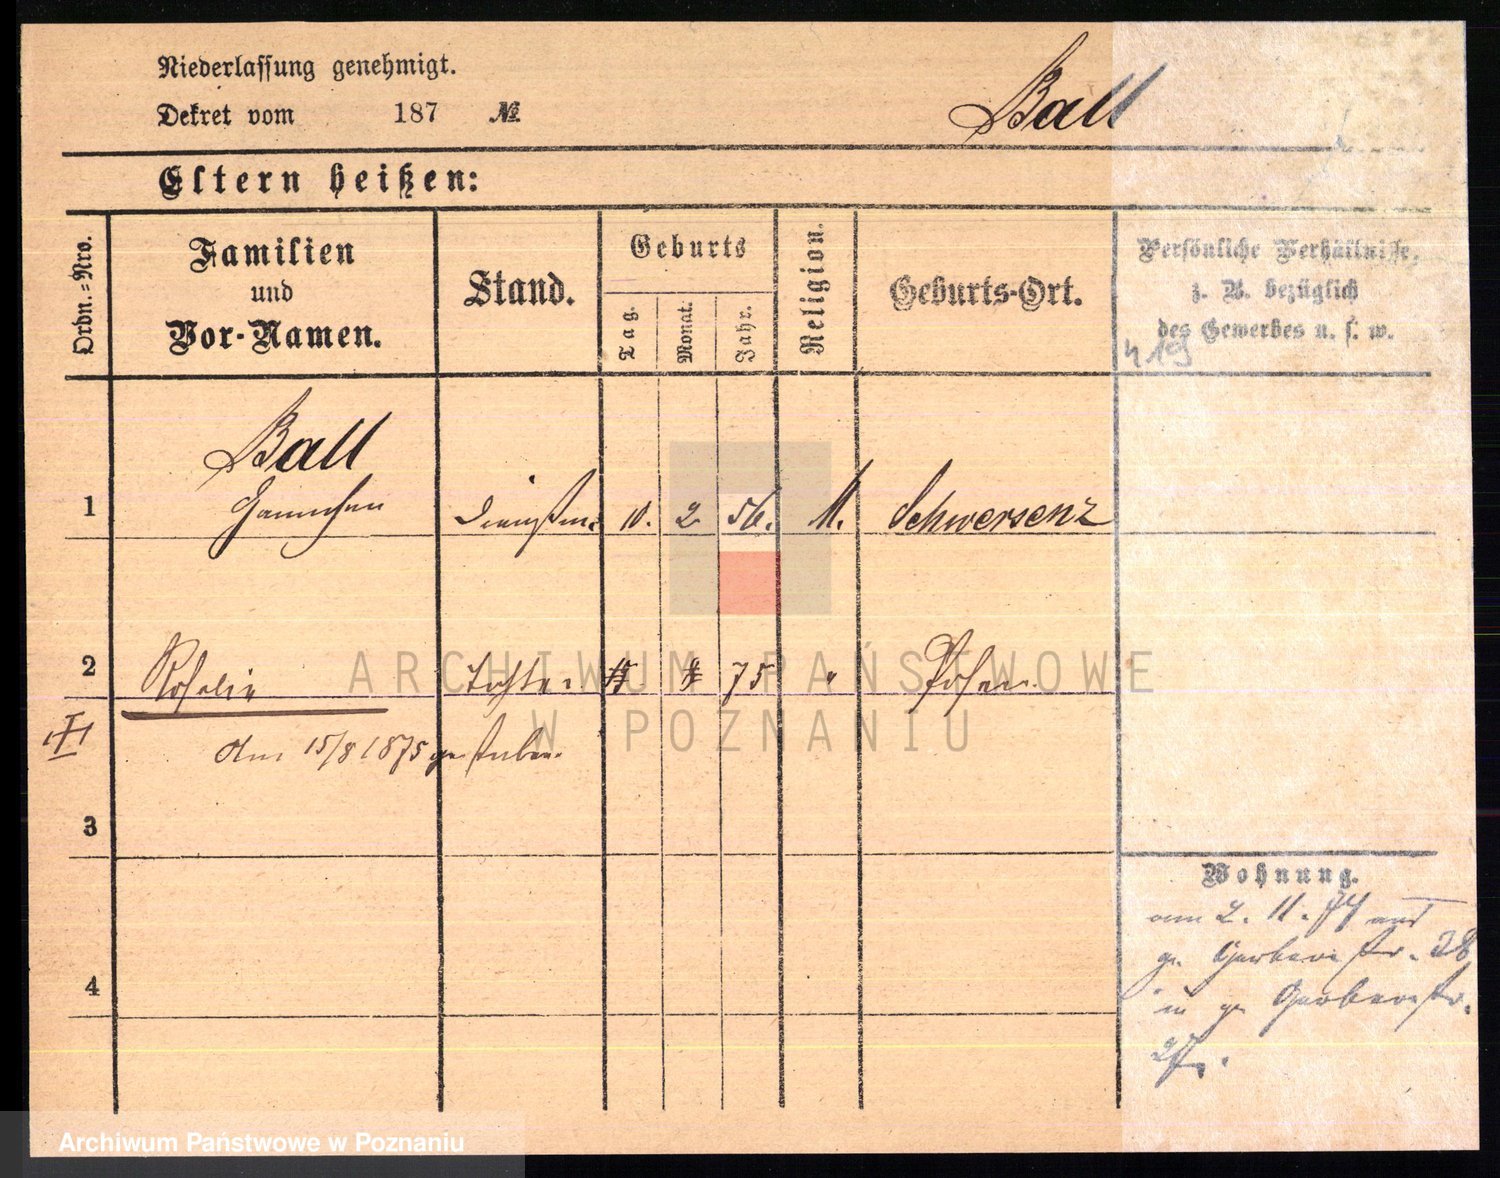 Niederlassung genehmigt.
Dekret vom 187 №
Ball
Eltern heißen:
Ordn.=Nro.
Familien
und
Vor-Namen.
Stand.
Geburts
Tag.
Monat.
Jahr.
Religion.
Geburts-Ort.
Persönliche Verhältnisse,
z. B. bezüglich
des Gewerbes u. s. w.
419
Ball
1 10. 2 56. M. Schwersenz
2 Rosalie Tochter 75 " Posen
am 15/8 1875 gestorben.
3
4
Wohnung.
am 2. 11. 74 aus
gr. Gerberstr. 38
in gr. Gerberstr.
27.
ARCHIWUM PAŃSTWOWE
W POZNANIU
Archiwum Państwowe w Poznaniu